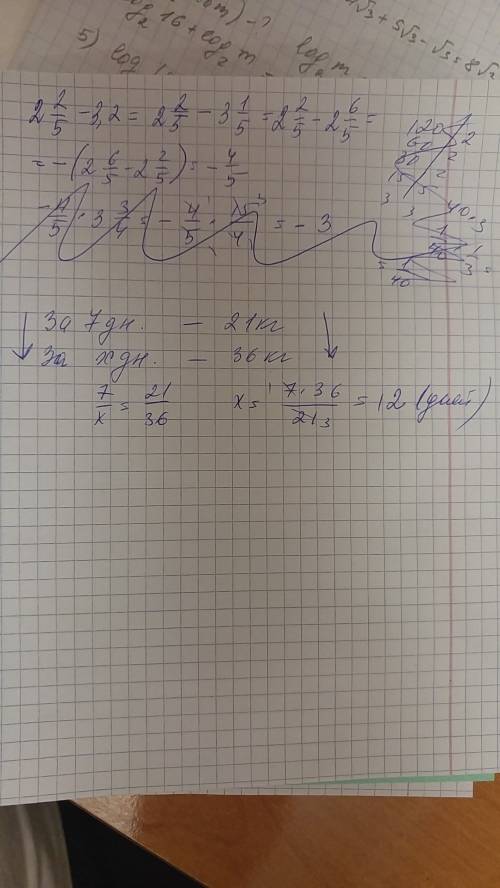 log₂ 16 + log₂ m
√3 + 5√3 - √3 = 8√2
5) log
log₂ m
2 2/5 - 3,2 = 2 2/5 - 3 1/5 = 2 2/5 - 2 6/5 =
= -(2 6/5 - 2 2/5) = - 4/5
- 4/5 · 3 3/4 = - 4/5 · 15/4 = - 3
120 2
60 2
30 2
15
5
3
40·3
1/40
За 7 дн. — 21 кг
За x дн. — 36 кг
7/x = 21/36 x = 7·36/21 = 12 (дней)